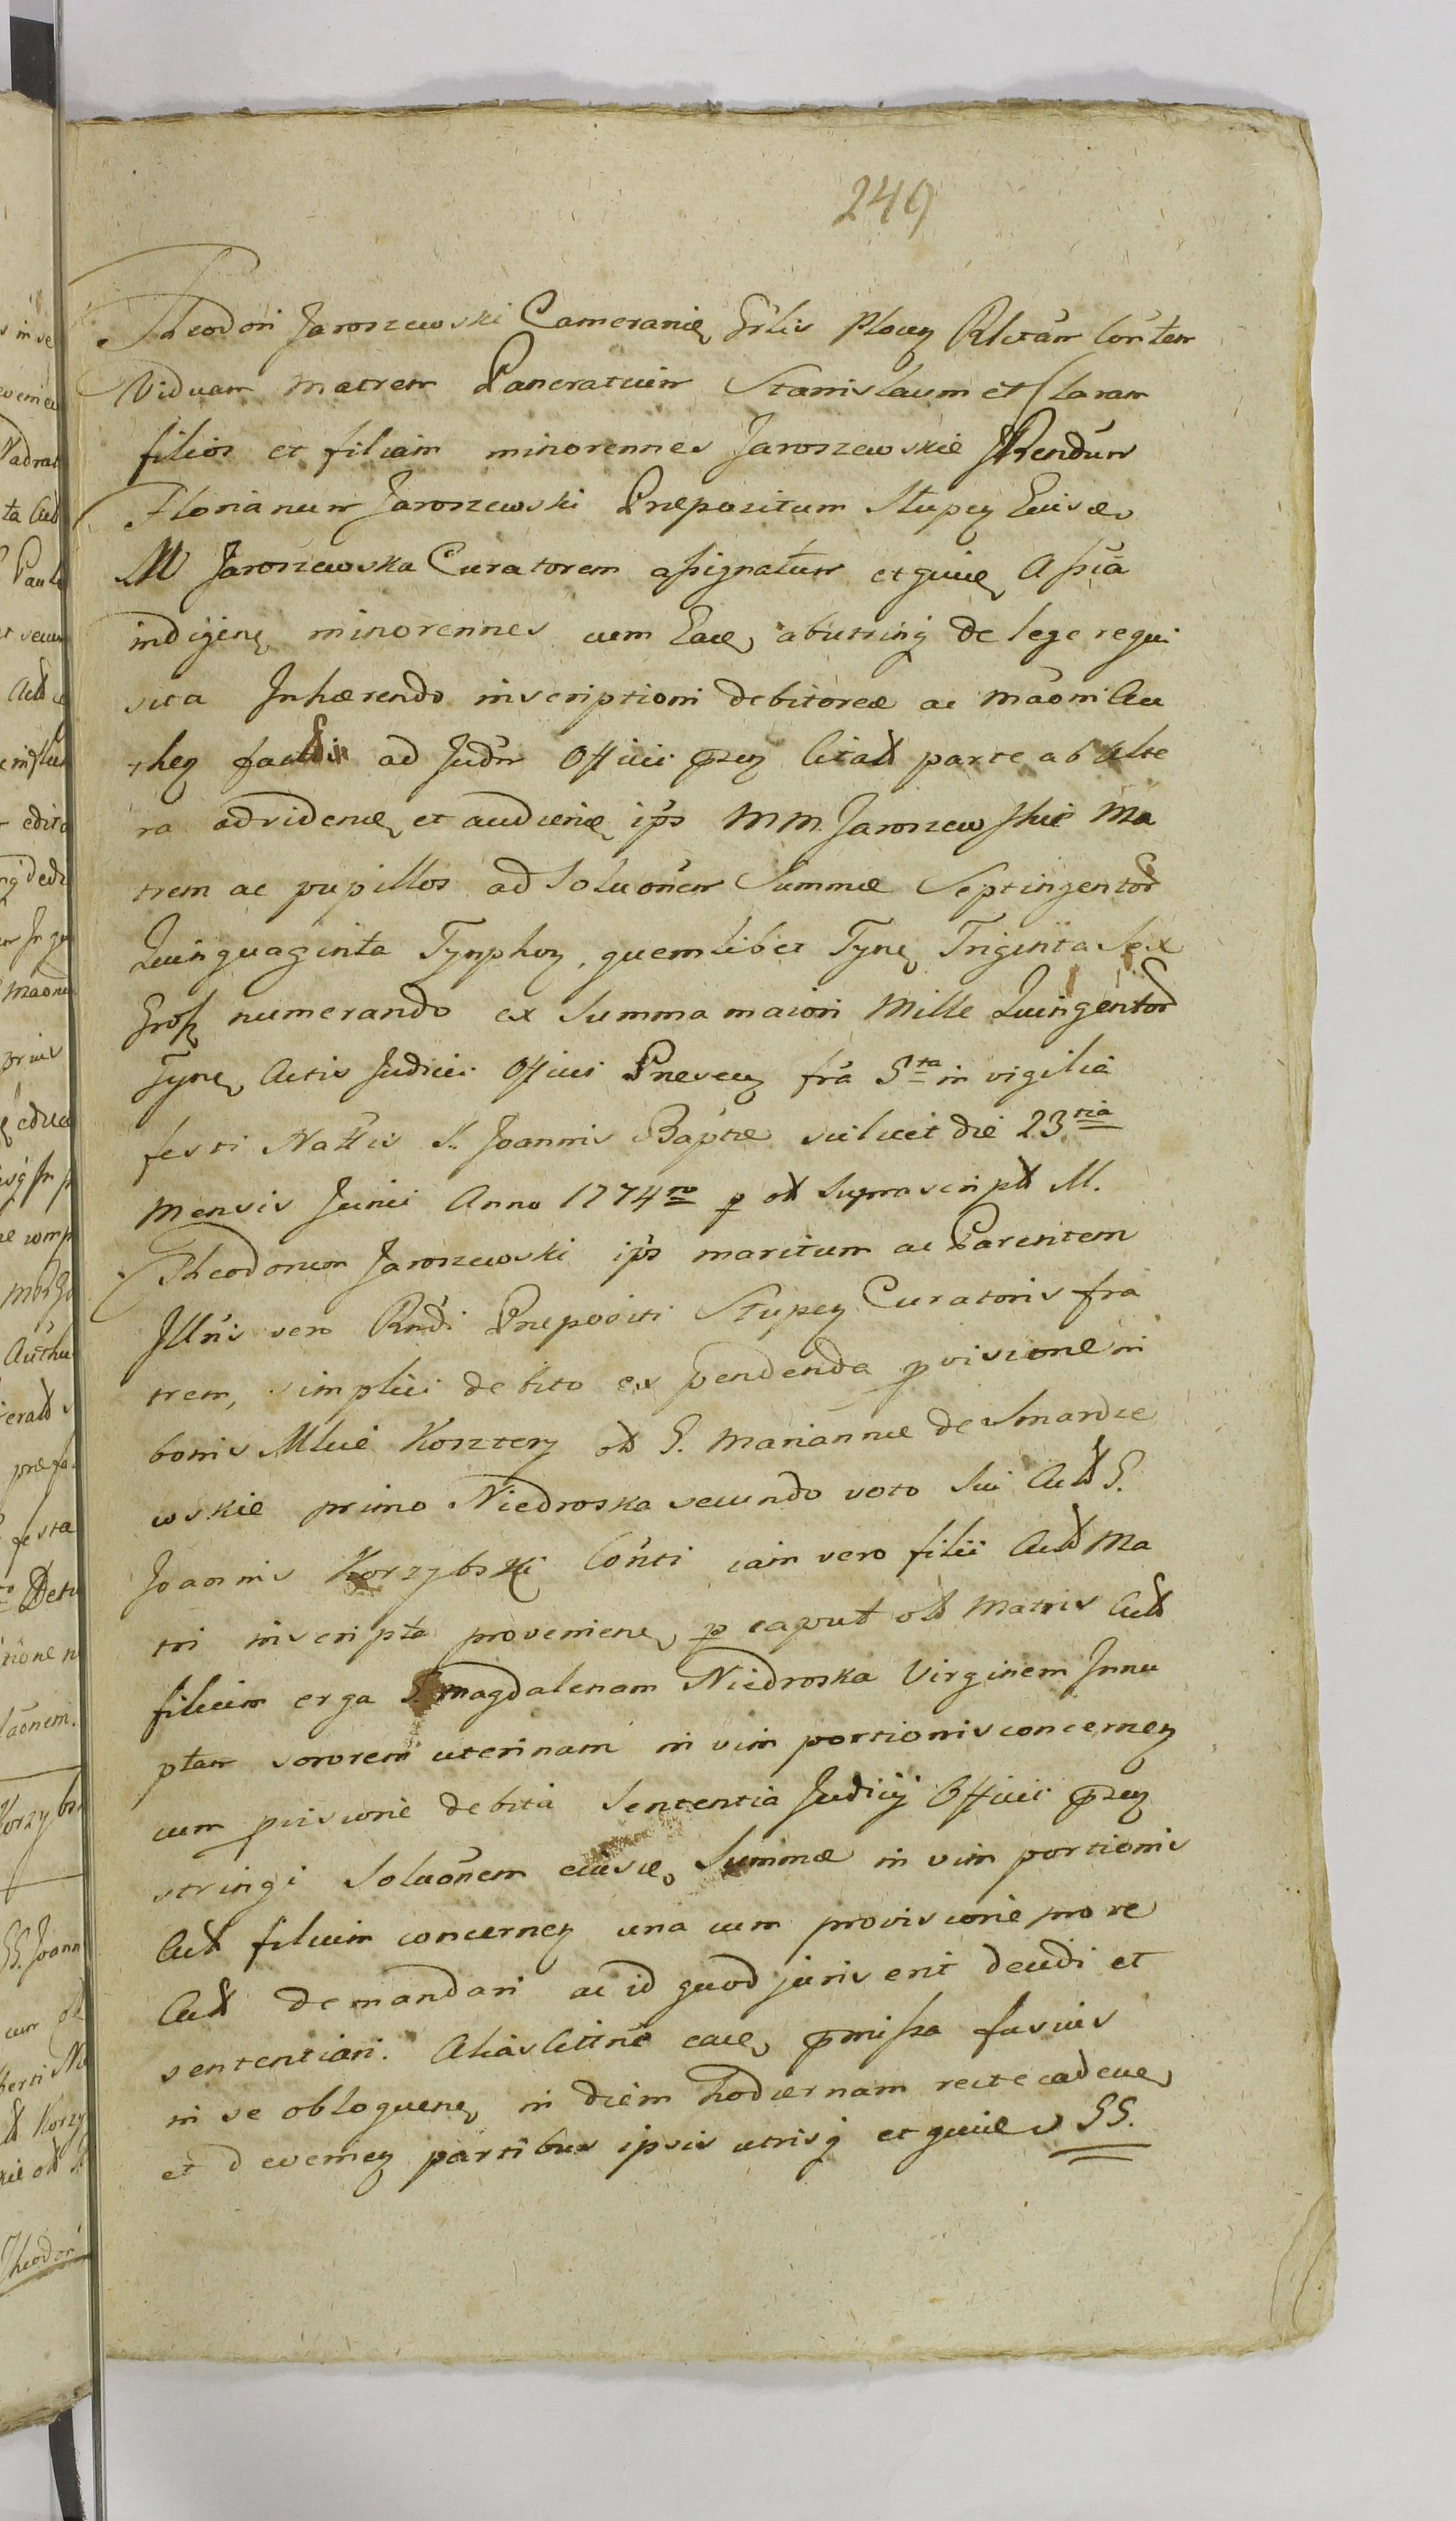 249
Theodori Jaroszewski Cameranię Grlis Płoceñ Rlictam Contem
Viduam matrem Pancratium Stanislaum et Claram
filios et filiam minorennes Jaroszewskie Rendum
Florianum Jaroszewski Præpositum Stupeñ Eiusdę
M Jaroszewska Curatorem assignatum et quię Assia
indigenę minorennes cum Eadę abutring de lege requi
sita Inhærendo inscriptioni debitoreæ ac
ad Judm Officii præñ Citat parte ab alte
ra ad videndę et audiendę ips MM. Jaroszewskie Ma
trem ac pupillos ad Soluonem Summæ Septingentor
Quinquaginta Tymphoñ, quemlibet Tynę Triginta Sex
Gross numerando ex Summa maiori Mille Quingentor
Tynę Actis Judicii Officii fra 5ta in vigilia
festi Natlis S. Joannis Baptæ scilicet die 23tia
mensis Junii Anno 1774to p ol Suprascript M.
Theodorum Jaroszewski ips maritum ac Parentem
Illris vero Rndi Præpositi Stupeñ Curatoris fra
trem, simplici debito ex pendenda pvisione in
bonis Mlue ol G. Mariannæ de Smardze
wskie primo Niedroska secundo voto Sui Act G.
Joannis Korzybski Conti iam vero filii Act Ma
tri inscripta provenienę p caput ol Matris Act
filium erga G. Magdalenam Niedroska Virginem Innu
ptam sororem uterinam in vim portionis concerneñ
cum pvisione debita Sententia Judicij Officii præñ
stringi Soluonem eiusdę Summæ in vim portionis
Act filium concerneñ una cum provisione pro re
Act demandari ac id quod juris erit decidi et
sententiari. Alias Citne eadę pmissa fusius
in se obloquenę in diem hodiernam recte cadenę
et deveneñ partibus ipsis utrisq et quię GG.